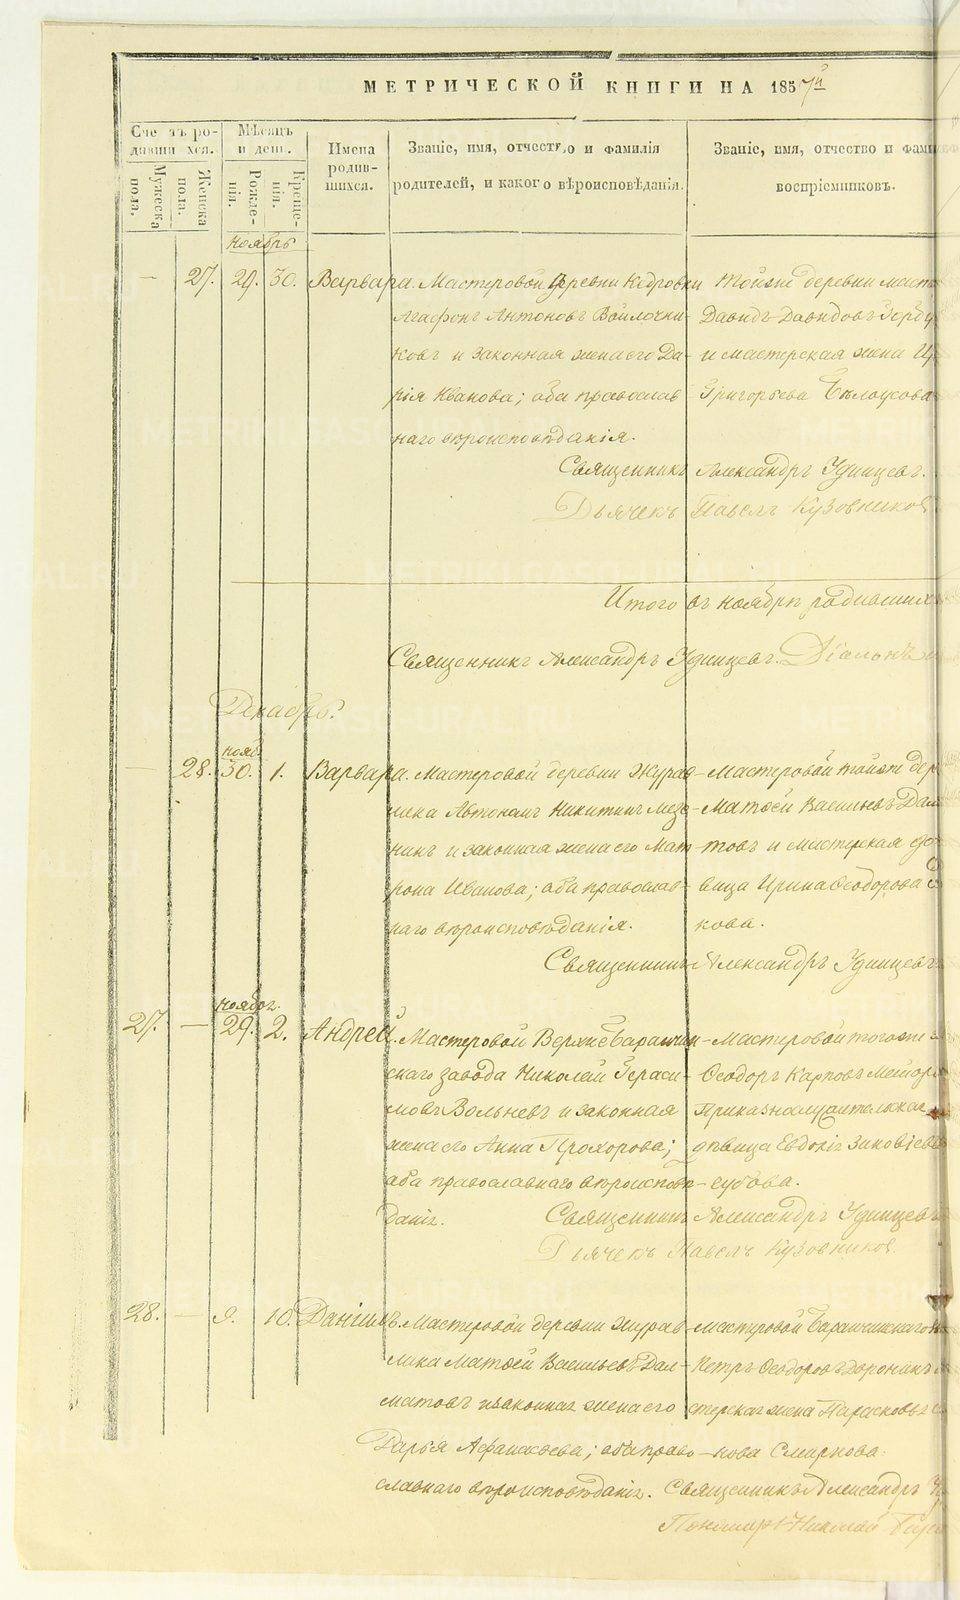 МЕТРИЧЕСКОЙ КНИГИ НА 1857й
Счетъ родившихся.
Мужеска пола.
Женска пола.
Мѣсяцъ и день.
Рожденія.
Крещенія.
Имена родившихся.
Званіе, имя, отчество и фамилія
родителей, и какого вѣроисповѣданія.
Званіе, имя, отчество и фам
воспріемниковъ.
ноябрь
— 27. 29. 30. Варвара. Мастеровой деревни Кедровки
Агафонъ Антоновъ Войлочни-
ковъ и законная жена его Да-
рія Иванова; оба православ
наго вѣроисповѣданія.
Тойже деревни маст
Давидъ Давидовъ
и мастерская жена
Григорьева Бѣлоусова
Священникъ Александръ Удинцевъ.
Дьячекъ Павелъ Кузовников
Итого въ ноябрѣ родивших
Священникъ Александръ Удинцевъ. Діаконъ
Декабрь.
нояб
— 28. 30. 1. Варвара. Мастеровой деревни Журав
лика Автоном Никитин
и законная жена его Мат
рона Иванова; оба православ-
наго вѣроисповѣданія.
Мастеровой тойже дер
Матѳей Васильевъ Дал
матовъ и мастерская
вица Ирина Ѳеодорова
кова.
Священникъ Александръ Удинцевъ
ноябр.
27. — 29. 2. Андрей. Мастеровой Верхнебаранчин
скаго завода Николай Гераси-
мовъ Вольневъ и законная
жена его Анна Прохорова;
оба православнаго вѣроисповѣ
данія.
Мастеровой тогоже
Ѳеодоръ Карповъ
дѣвица Евдокія Зиновіева
Священникъ Александръ Удинцевъ
Дьячекъ Павелъ Кузовников.
28. — 9. 10. Даніилъ. Мастеровой деревни Журав
лика Матѳей Васильевъ Дал-
матовъ и законная жена его
Дарья Афанасьева; оба право
славнаго вѣроисповѣданія.
Мастеровой Баранчинскаго
Петръ Ѳеодоровъ Доронин
стерская жена Парасковья
нова Смирнова.
Священникъ Александръ
Пономарь Николай
METRIKI.GASO-URAL.RU